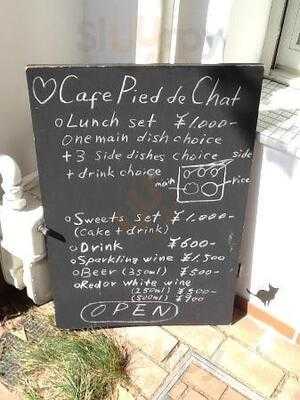 ♡Cafe Pied de Chat
o Lunch set ¥1.000-
One main dish choice
+ 3 side dishes choice
+ drink choice
side
main
rice
o Sweets set ¥1.000-
(cake + drink)
o Drink ¥600-
o Sparkling wine ¥1.500
o Beer (350ml) ¥500-
o Red or White wine
(250ml) ¥500-
(500ml) ¥900
OPEN